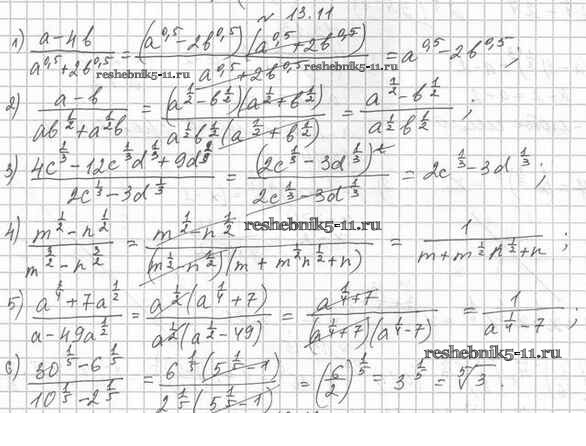 № 13.11
1) (a-4b)/(a^0,5+2b^0,5) = (a^0,5-2b^0,5)(a^0,5+2b^0,5)/(a^0,5+2b^0,5) = a^0,5-2b^0,5;
reshebnik5-11.ru reshebnik5-11.ru
2) (a-b)/(ab^(1/2)+a^(1/2)b) = (a^(1/2)-b^(1/2))(a^(1/2)+b^(1/2))/(a^(1/2)b^(1/2)(a^(1/2)+b^(1/2))) = (a^(1/2)-b^(1/2))/(a^(1/2)b^(1/2));
3) (4c^(2/3)-12c^(1/3)d^(1/3)+9d^(2/3))/(2c^(1/3)-3d^(1/3)) = (2c^(1/3)-3d^(1/3))^2/(2c^(1/3)-3d^(1/3)) = 2c^(1/3)-3d^(1/3);
reshebnik5-11.ru
4) (m^(1/2)-n^(1/2))/(m^(3/2)-n^(3/2)) = (m^(1/2)-n^(1/2))/((m^(1/2)-n^(1/2))(m+m^(1/2)n^(1/2)+n)) = 1/(m+m^(1/2)n^(1/2)+n);
5) (a^(1/4)+7a^(1/2))/(a-49a^(1/2)) = a^(1/2)(a^(1/4)+7)/(a^(1/2)(a^(1/2)-49)) = (a^(1/4)+7)/((a^(1/4)+7)(a^(1/4)-7)) = 1/(a^(1/4)-7);
reshebnik5-11.ru
6) (30^(1/5)-6^(1/5))/(10^(1/5)-2^(1/5)) = 6^(1/5)(5^(1/5)-1)/(2^(1/5)(5^(1/5)-1)) = (6/2)^(1/5) = 3^(1/5) = ⁵√3.